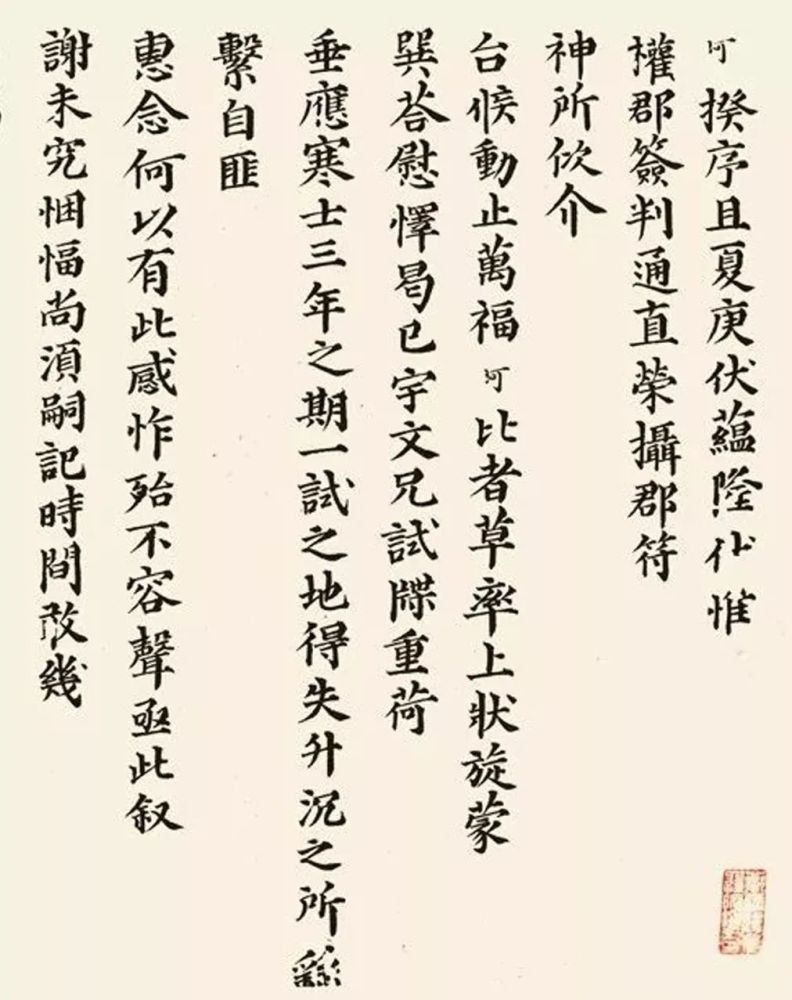 可揆序且夏庚伏蘊隆伏惟
權郡簽判通直榮攝郡符
神所佽介
台候動止萬福可比者草率上狀旋蒙
巽荅慰懌曷已宇文兄試牒重荷
垂應寒士三年之期一試之地得失升沉之所繇
繫自匪
惠念何以有此感怍殆不容聲亟此叙
謝未究悃愊尚須嗣記時間敢幾